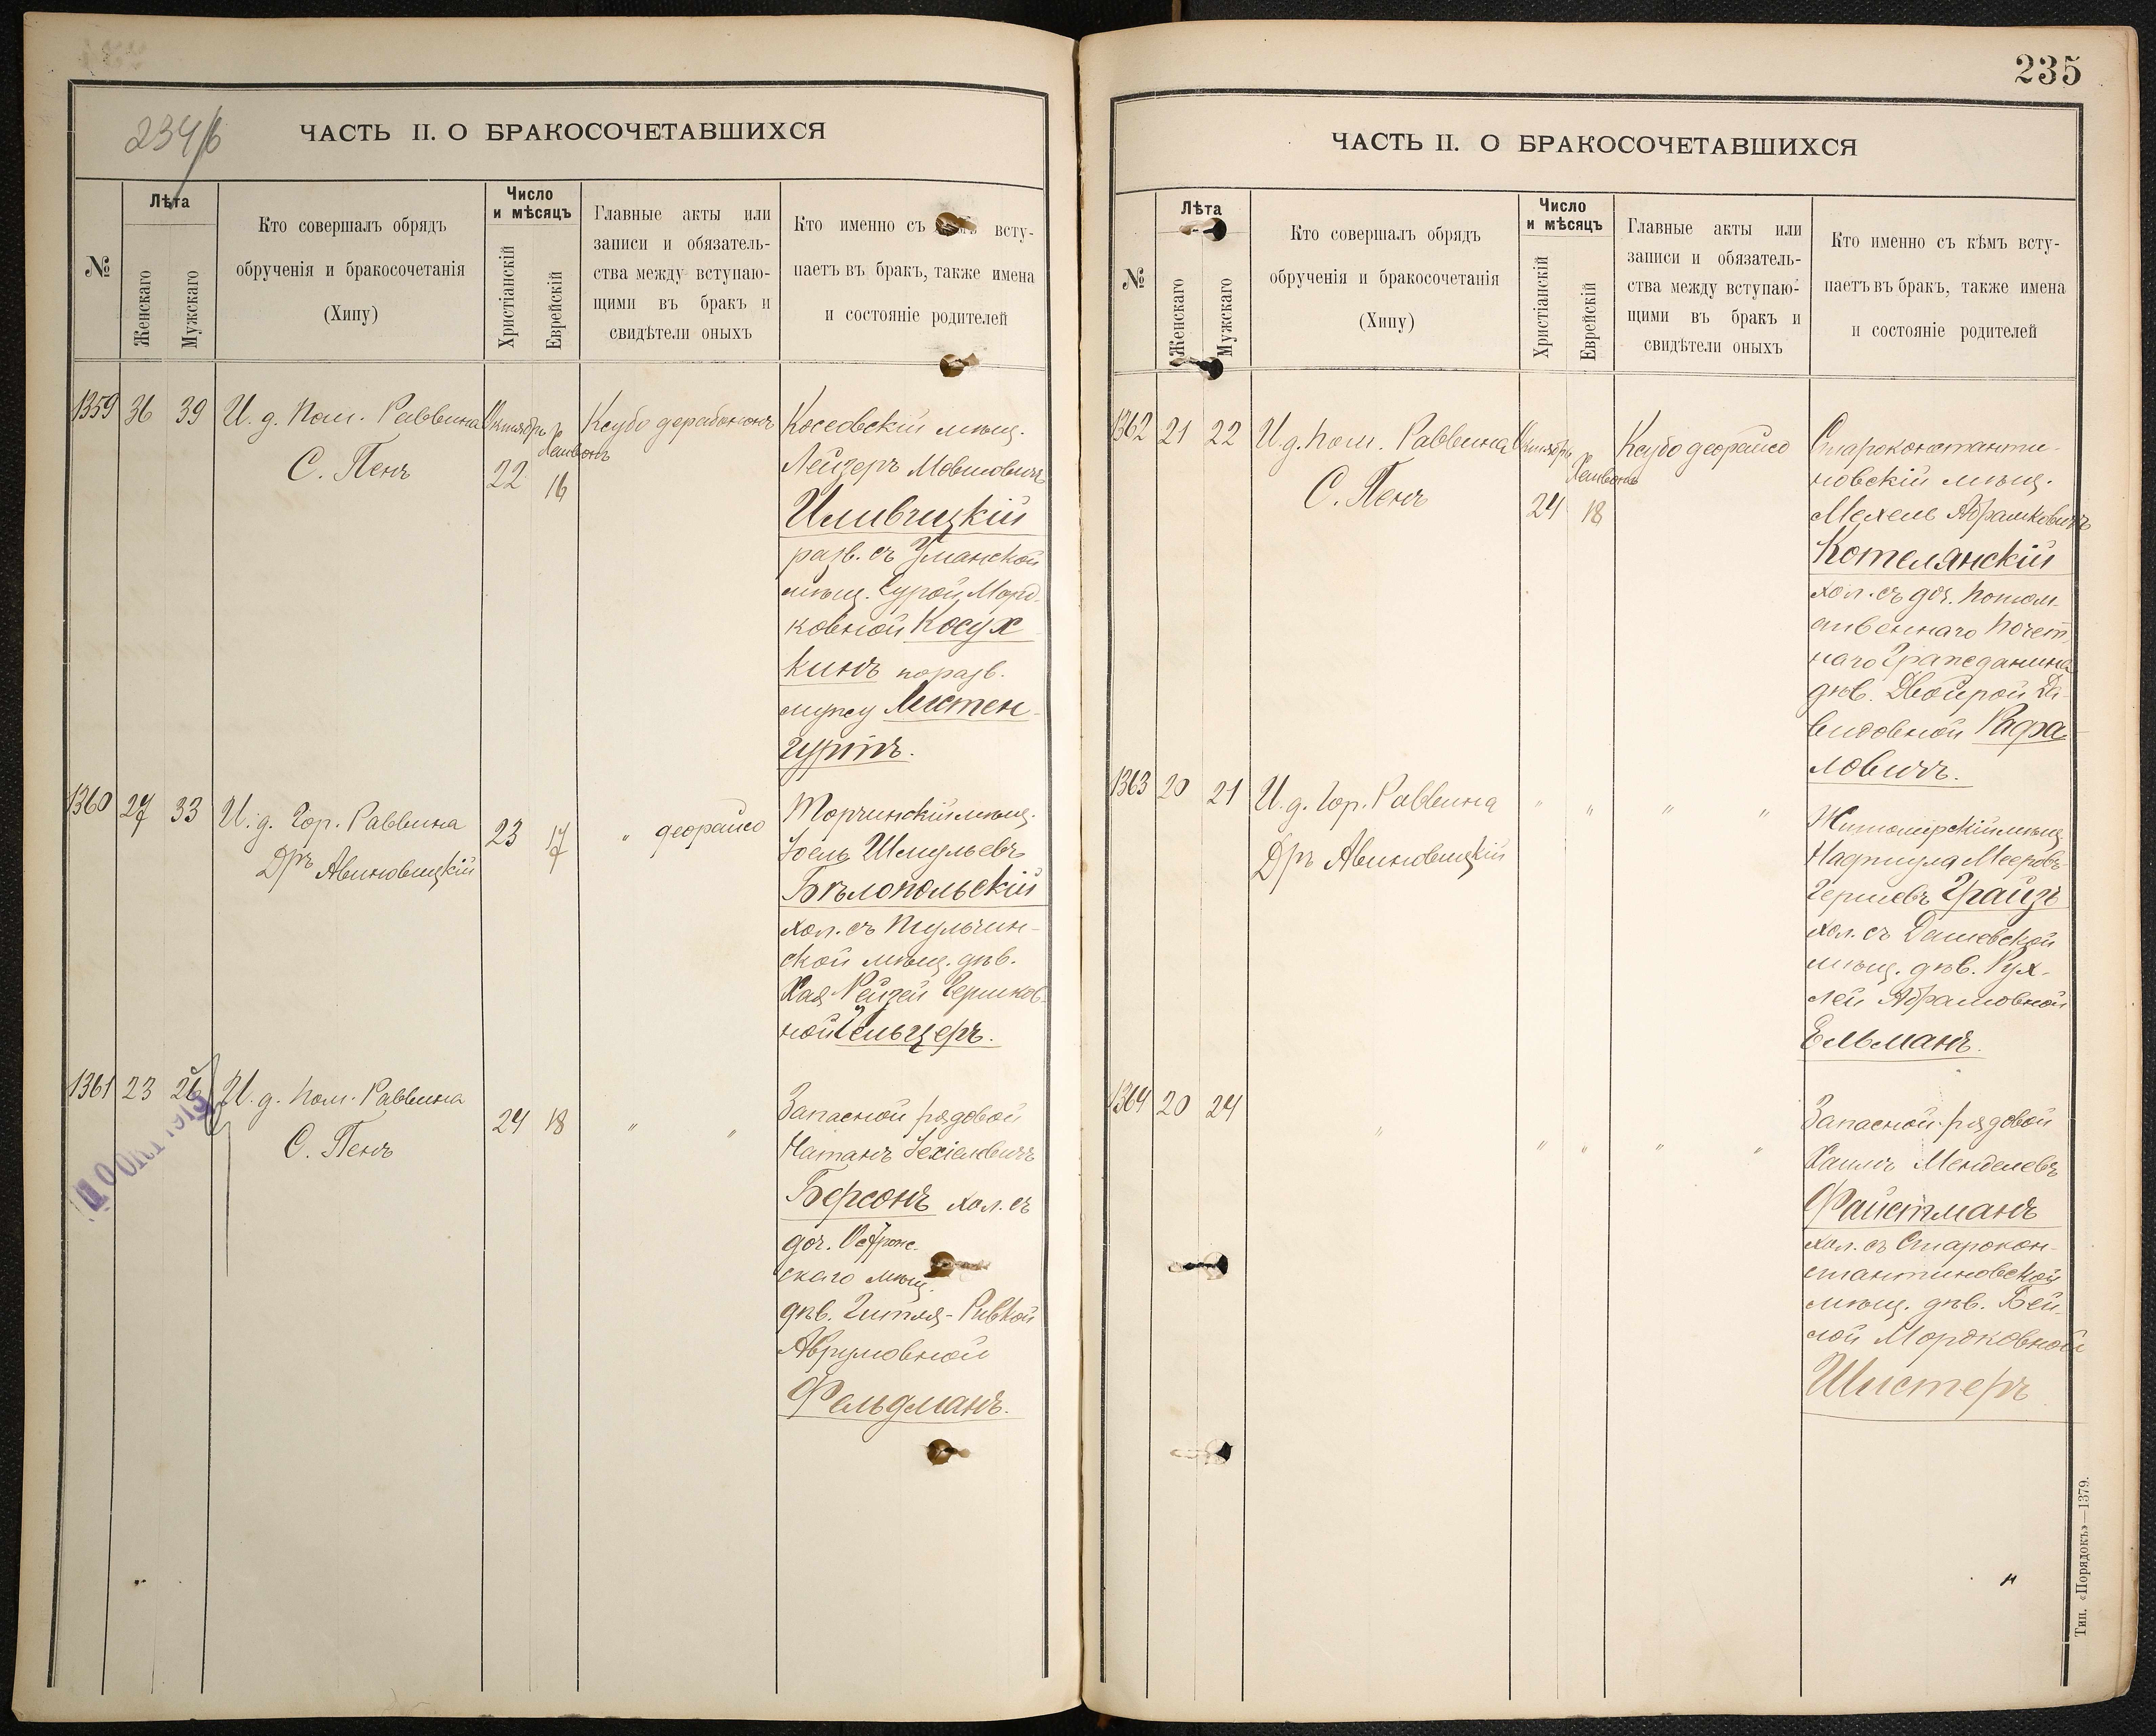 234/б
ЧАСТЬ II. О БРАКОСОЧЕТАВШИХСЯ
№
Лѣта
Женскаго
Мужскаго
Кто совершалъ обрядъ
обрученія и бракосочетанія
(Хипу)
Число
и мѣсяцъ
Христіанскій
Еврейскій
Главные акты или
записи и обязатель-
ства между вступаю-
щими въ бракъ и
свидѣтели оныхъ
Кто именно съ всту-
паетъ въ бракъ, также имена
и состояніе родителей
1359 36 39 И. д. Пом. Раввина Октябрь Хешвонъ Ксубо дерабононъ
С. Пенъ 22 16
Лейзеръ Мовшовичъ
разв. съ Уманской
мѣщ. Сурой Морд-
ковной Косух
кинъ по разв.
мужу Листен-
гуртъ.
1360 27 33 И. д. Гор. Раввина 23 17 " деорайсо
Дръ Авиновицкій
Торчинскій мѣщ.
Іоель Шмульевъ
Бѣлопольскій
хол. съ Тульчин-
ской мѣщ. дѣв.
Хая Рейзей Гершков-
ной Сельцеръ.
1361 23 26 И. д. Пом. Раввина 24 18 " "
С. Пенъ
Запасной рядовой
Натанъ Іехіелевичъ
Берсонъ хол. съ
доч.
скаго мѣщ.
дѣв. Гитля-Ривкой
Аврумовной
Фельдманъ.
235
ЧАСТЬ II. О БРАКОСОЧЕТАВШИХСЯ
№
Лѣта
Женскаго
Мужскаго
Кто совершалъ обрядъ
обрученія и бракосочетанія
(Хипу)
Число
и мѣсяцъ
Христіанскій
Еврейскій
Главные акты или
записи и обязатель-
ства между вступаю-
щими въ бракъ и
свидѣтели оныхъ
Кто именно съ кѣмъ всту-
паетъ въ бракъ, также имена
и состояніе родителей
1362 21 22 И. д. Пом. Раввина Октябрь Хешвонъ Ксубо деорайсо
С. Пенъ 24 18
Староконстанти-
новскій мѣщ.
Мехель Абрамковичъ
Котелянскій
хол. съ доч. Потом-
ственнаго Почет-
наго Гражданина
дѣв. Двойрой Да-
видовной Рафа
ловичъ.
1363 20 21 И. д. Гор. Раввина " " " "
Дръ Авиновицкій
Житомирскій мѣщ.
Нафтула Мееровъ-
Гершевъ Грайзъ
хол. съ Дашевской
мѣщ. дѣв. Рух-
лей Абрамовной
Ельманъ.
1364 20 24 " " " " "
Запасной рядовой
Хаимъ Менделевъ
Файстманъ
хол. съ Старокон-
стантиновской
мѣщ. дѣв. Бей-
лой Мордковной
Шистеръ
Тип. «Порядокъ»—1379.